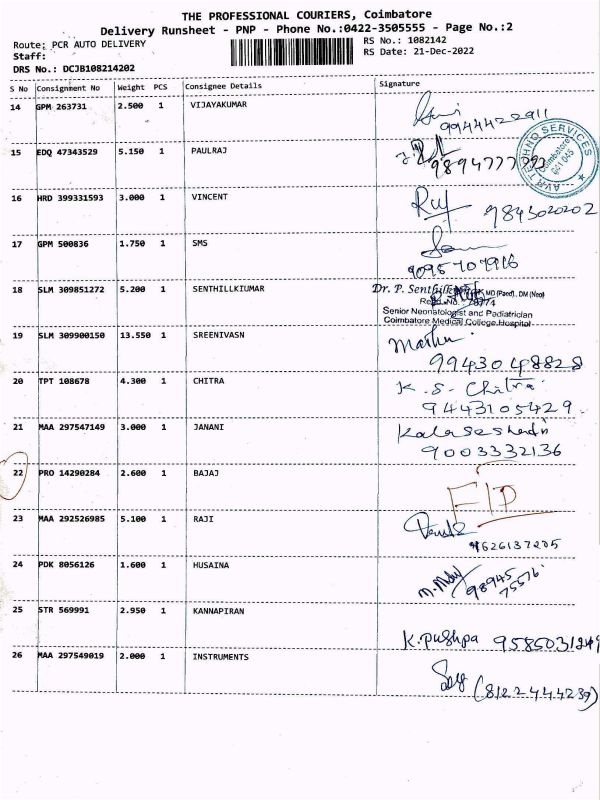 THE PROFESSIONAL COURIERS, Coimbatore
Delivery Runsheet - PNP - Phone No.:0422-3505555 - Page No.:2
Route: PCR AUTO DELIVERY
RS No.: 1082142
Staff:
RS Date: 21-Dec-2022
DRS No.: DCJB108214202
S No Consignment No Weight PCS Consignee Details Signature
14 GPM 263731 2.500 1 VIJAYAKUMAR
9944422911
15 EDQ 47343529 5.150 1 PAULRAJ
AVR TECHNO SERVICES
Coimbatore
641 045
16 HRD 399331593 3.000 1 VINCENT
9843020202
17 GPM 500836 1.750 1 SMS
9095707916
18 SLM 309851272 5.200 1 SENTHILLKIUMAR
Dr. P. Senthilkumar MD (Paed), DM (Neo)
Regd No.
Senior Neonatologist and Padiatrician
Coimbatore Medical College Hospital
19 SLM 309900150 13.550 1 SREENIVASN
9943048828
20 TPT 108678 4.300 1 CHITRA
K. S. Chitra
9443105429
21 MAA 297547149 3.000 1 JANANI
9003332136
22 PRO 14290284 2.600 1 BAJAJ
23 MAA 292526985 5.100 1 RAJI
9626137205
24 PDK 8056126 1.600 1 HUSAINA
98945
75576
25 STR 569991 2.950 1 KANNAPIRAN
K. pushpa
26 MAA 297549019 2.000 1 INSTRUMENTS
(8122444239)